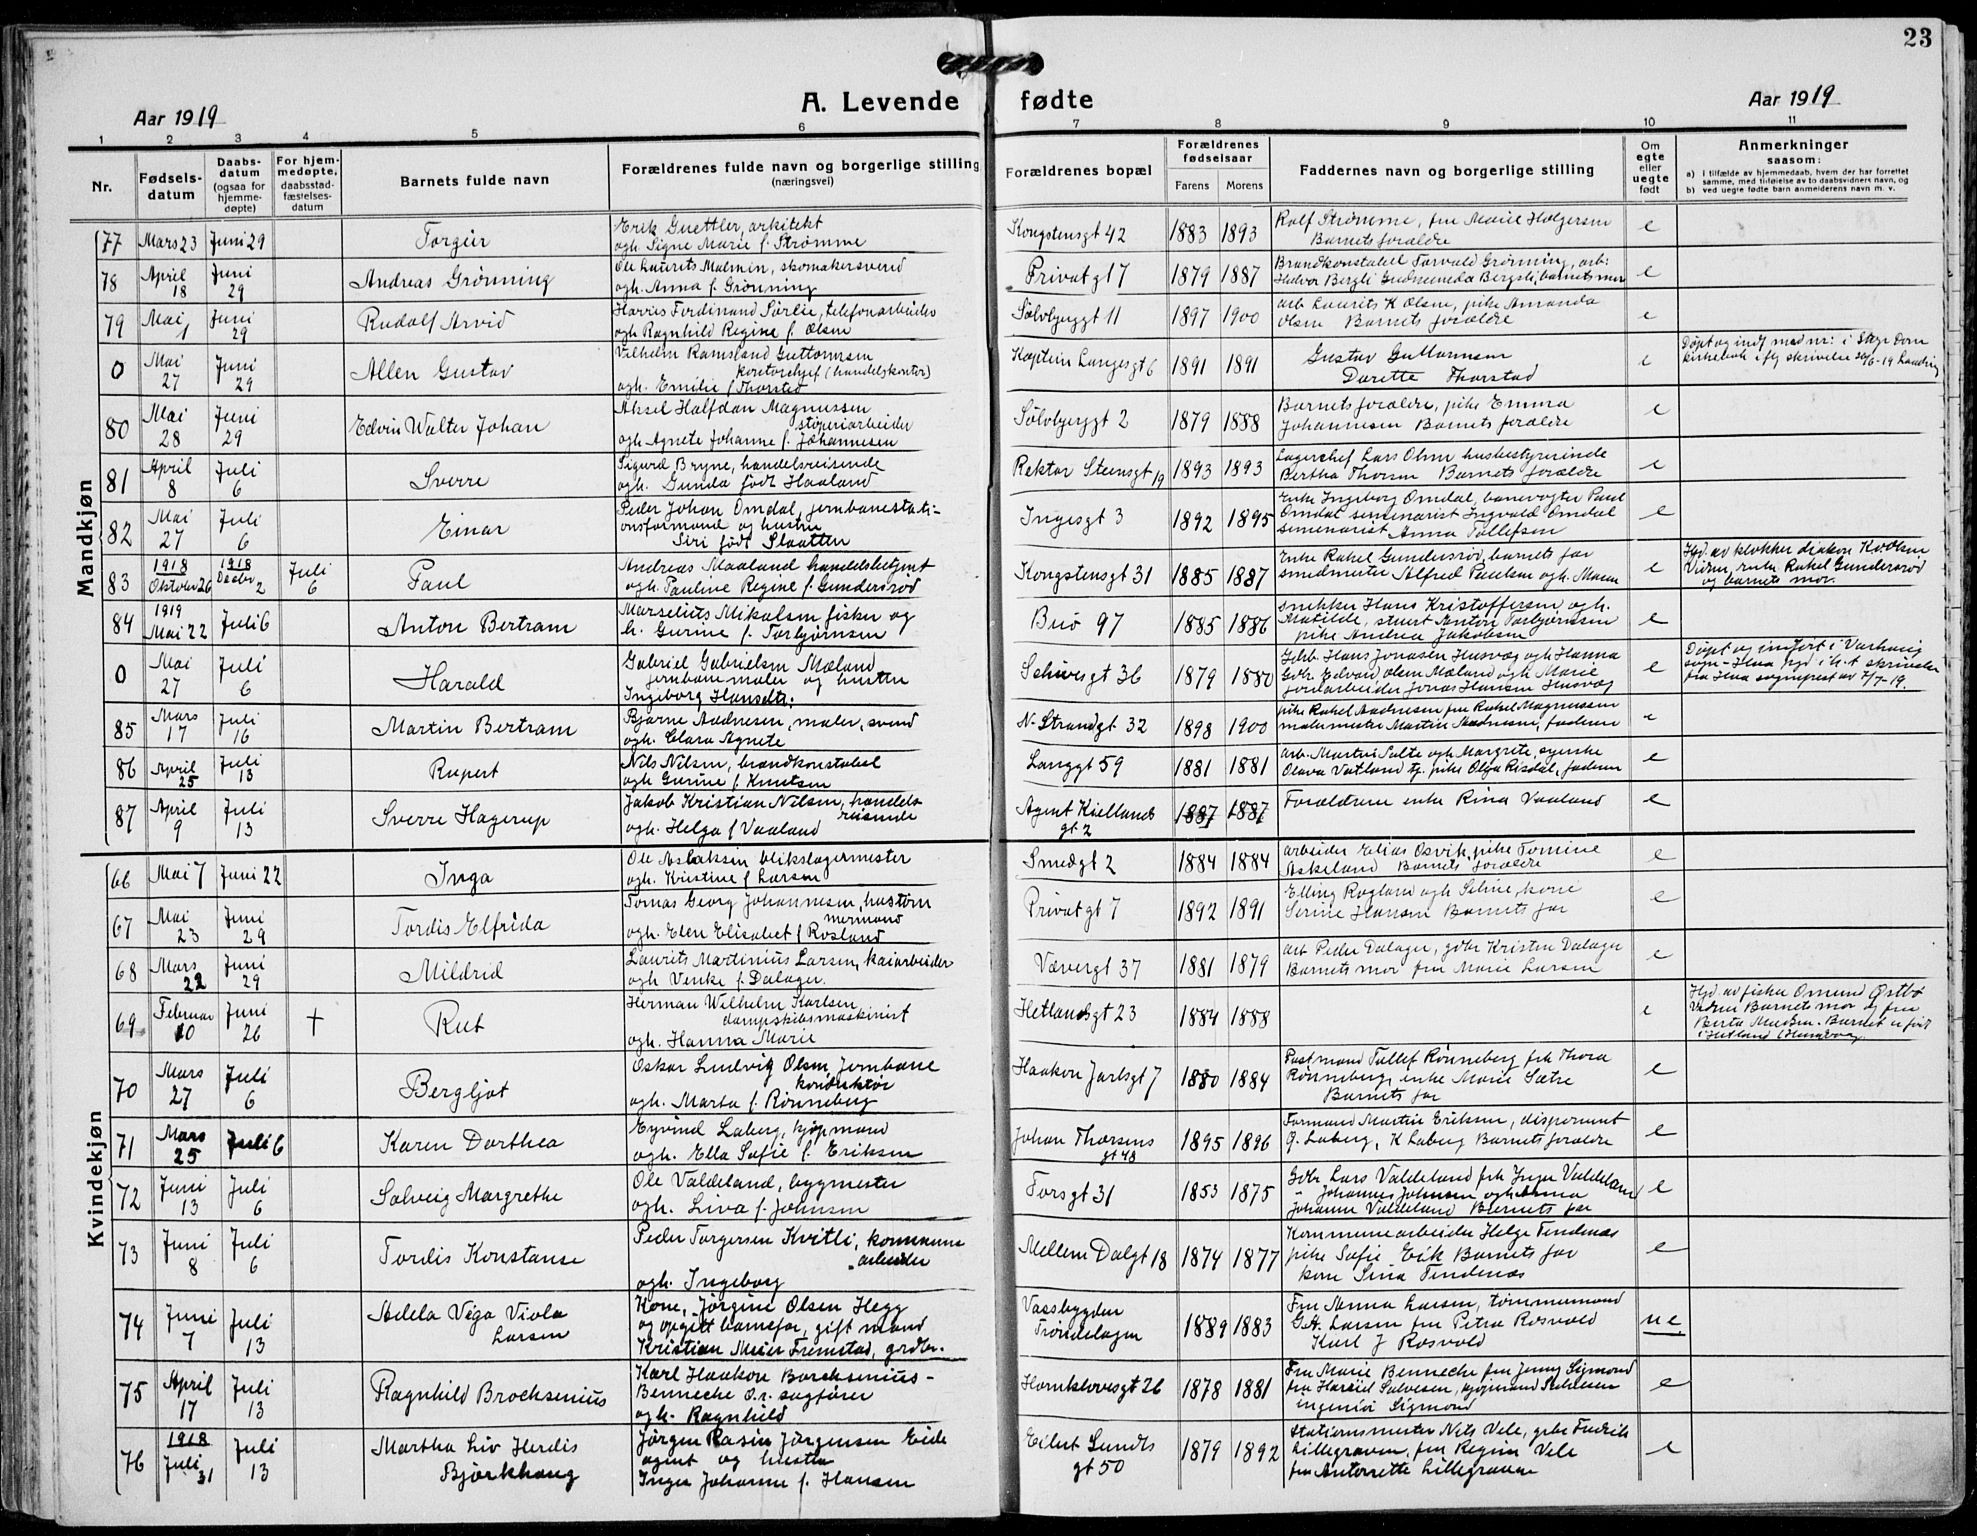 23
Aar 1919
A. Levende fødte
Aar 1919
1 2 3 4 5 6 7 8 9 10 11
Nr.
Fødsels-
datum
Daabs-
datum
(ogsaa for
hjemme-
døpte)
For hjem-
medøpte,
daabsstad-
fæstelses-
datum
Barnets fulde navn
Forældrenes fulde navn og borgerlige stilling
(næringsvei)
Forældrenes bopæl
Forældrenes
fødselsaar
Farens Morens
Faddernes navn og borgerlige stilling
Om
egte
eller
uegte
født
Anmerkninger
saasom:
a) i tilfælde av hjemmedaab, hvem der har forrettet
samme, med tilføielse av to daabsvidners navn, og
b) ved uegte fødte barn anmelderens navn m. v.
Mandkjøn
77 Mars 23 Juni 29 Torgeir
Erik Guettler, arkitekt
ogh. Signe Marie f. Strømme
Kongstensgt 42 1883 1893
Rolf Strømme, fru Marie Holgersen
Barnets forældre
e
78 April 18 Juni 29 Andreas Grønning
Ole Laurits Malmin, skomakersvend
ogh. Anna f. Grønning
Privatgt 7 1879 1887
Brandkonstabel Torvald Grønning, arb:
Halvor Bergli Gudmunda Bergsli, barnets mor
e
79 Mai 1 Juni 29 Rudolf Arvid
Ferdinand Sørlie, telefonarbeider
ogh. Ragnhild Regine f. Olsen
Sølvberggt 11 1897 1900
arb Laurits K Olsen, pike Amanda
Olsen Barnets forældre
e
0 Mai 27 Juni 29 Allen Gustav
Vilhelm Ramsland Guttormsen
kontorchef (handelskontor)
ogh. Emilie f Thorstad
Kaptein Langesgt 6 1891 1891
Gustav Guttormsen
Dorette Thorstad
e
Døpt og indf med nr: i Stgr Dom
kirkebok ifg skrivelse
80 Mai 28 Juni 29 Edvin Walter Johan
Aksel Halfdan Magnussen
støperiarbeider
ogh Agnete Johanne f. Johannesen
Sølvberggt 2 1879 1888
Barnets forældre, pike Emma
Johannesen Barnets forældre
e
81 April 8 Juli 6 Sverre
Sigurd Bryne, handelsreisende
ogh. Gunda født Haaland
Rektor Steensgt 19 1893 1893
Lagerchef Lars Olsen husbestyrerinde
Bertha Thorsen Barnets forældre
e
82 Mai 27 Juli 6 Einar
Peder Johan Omdal, jernbanestati-
onsformand og hustru
Siri født Slaatten
Ingesgt 3 1892 1895
Enke Ingeborg Omdal, banevogter Paul
Omdal seminarist Ingvald Omdal
seminarist Anna Tollefsen
e
83 1918 Oktober 26 1918 Decbr 2 Juli 6 Paul
Andreas Maaland handelsbetjent
ogh. Pauline Regine f. Gundersrød
Kongstensgt 31 1885 1887
Enke Rakel Gundersrød, barnets far
smedmester Alfred Paulsen ogh. Maren
e
Hjd. av klokker diakon K Olsen
Vidner, enke Rakel Gundersrød
og barnets mor.
84 1919 Mai 22 Juli 6 Anton Bertram
Marselius Mikalsen fisker og
h. Gurine f. Torbjørnsen
Buø 97 1885 1886
snekker Hans Kristoffersen ogh.
Matilde, stuert Anton Torbjørnsen
pike Andrea Jakobsen
e
0 Mai 27 Juli 6 Harald
Gabriel Gabrielsen Mæland
jernbanemaler og hustru
Ingeborg Hansdtr.
Schivesgt 36 1879 1880
Gdb. Hans Jonasen Husvæg ogh Hanna
Gdb. Edvard Olsen Mæland ogh Marie
jordarbeider Jonas Hansen Husvæg
e
Døpt og indført i Varhaug
sogn - Haa pgd i h.t skrivelse
fra Haa sogneprest av 7/7-19.
85 Mars 17 Juli 16 Martin Bertram
Bjarne Aadnesen, maler, svend
ogh. Clara Agnete
N. Strandgt 32 1898 1900
pike Rakel Aadnesen fru Rakel Magnussen
malermester Martin Aadnesen, faderen
e
86 April 25 Juli 13 Rupert
Nils Nilsen, brandkonstabel
ogh Gurine f Knutsen
Langgt 59 1881 1881
arb. Martin Salte ogh Margrete, syerske
Olava Vatland tj. pike Olga Risdal, faderen
e
87 April 9 Juli 13 Sverre Hagerup
Jakob Kristian Nilsen, handels
reisende
ogh. Helga f Vaaland
Agent Kiellands
gt 2 1887 1887
Forældrene enke Rina Vaaland
e
Kvindekjøn
66 Mai 7 Juni 22 Inga
Ole Aslaksen blikslagermester
ogh. Kristine f Larsen
Smedgt 2 1884 1884
arbeider Elias Osvik, pike Tomine
Askeland Barnets forældre
e
67 Mai 23 Juni 29 Tordis Elfrida
Tomas Georg Johannesen, hustøm
mermand
ogh. Elen Elisabet f Rosland
Privatgt 7 1892 1891
Elling Rogland ogh Seline, kone
Serine Hansen Barnets far
e
68 Mars 22 Juni 29 Mildrid
Laurits Martinius Larsen, kaiarbeider
ogh Venke f. Dalager.
Vævergt 37 1881 1879
arb Peder Dalager, gdbr Kristen Dalager
Barnets mor fru Marie Larsen
e
69 Februar 10 Juni 26 + Rut
Herman Wilhelm Karlsen
dampskibsmaskinist
ogh. Hanna Marie
Hetlandsgt 23 1884 1888
e
Hjd. av fisker Omund Østbø
Vidner Barnets mor og fru
Berta Madsen. Barnet er født
i Hetland
70 Mars 27 Juli 6 Bergljot
Oskar Ludvig Olsen, Jernbane
konduktør
ogh. Marta f. Rønneberg
Haakon Jarlsgt 7 1880 1884
Postmand Tollef Rønneberg frk Thora
Rønneberg, enke Marie Sætre
Barnets far
e
71 Mars 25 Juli 6 Karen Dorthea
Eyvind Laberg, kjøpmand
ogh. Ella Sofie f. Eriksen
Johan Thorsens
gt 48 1895 1896
Formand Martin Eriksen, disponent
G. Laberg, K Laberg Barnets forældre
e
72 Juni 13 Juli 6 Solveig Margrethe
Ole Valdeland, bygmester
ogh. Liva f. Johnsen
Torsgt 31 1853 1875
Gdb. Lars Valdeland frk Inga Valdeland
" Johannes Johnsen ogh Anna
Johanne Valdeland Barnets far
e
73 Juni 8 Juli 6 Tordis Konstanse
Peder Torgersen Kvitli, kommune
arbeider
ogh. Ingeborg
Mellem Dalgt 18 1874 1877
Kommunearbeider Helge Tendenæs
pike Sofie Eik Barnets far
kone Sina Tendenæs
e
74 Juni 7 Juli 13 Adela Vega Viola
Larsen
Kone, Jørgine Olsen Hegg
og opgitt barnefar, gift mand
Kristian Meier Fremstad, grdbr.
Vassbygden
Trøndelagen 1889 1883
Fru Anna Larsen, tømmermand
G.A. Larsen fru Petra Rosvold
Karl J Rosvold
ue
75 April 17 Juli 13 Ragnhild Brochsenius
Karl Haakon Borchsenius-
Benneche o.r. sagfører
ogh. Ragnhild
Hornklovesgt 26 1878 1881
Fru Marie Bennecke fru Jenny Sigmond
fru Harriet Salvesen, kjøpmand
ingeniør Sigmond
e
76 1918 Juli 31 Juli 13 Martha Liv Herdis
Bjørkhaug
Jørgen Rasin Jørgensen Eide
agent og hustru
Inga Johanne f. Hansen
Eilert Sundts
gt 50 1879 1892
Stationsmester Nils Vele, grbr Fredrik
Lillegraven, fru Regine Vele
fru Antonette Lillegraven
e